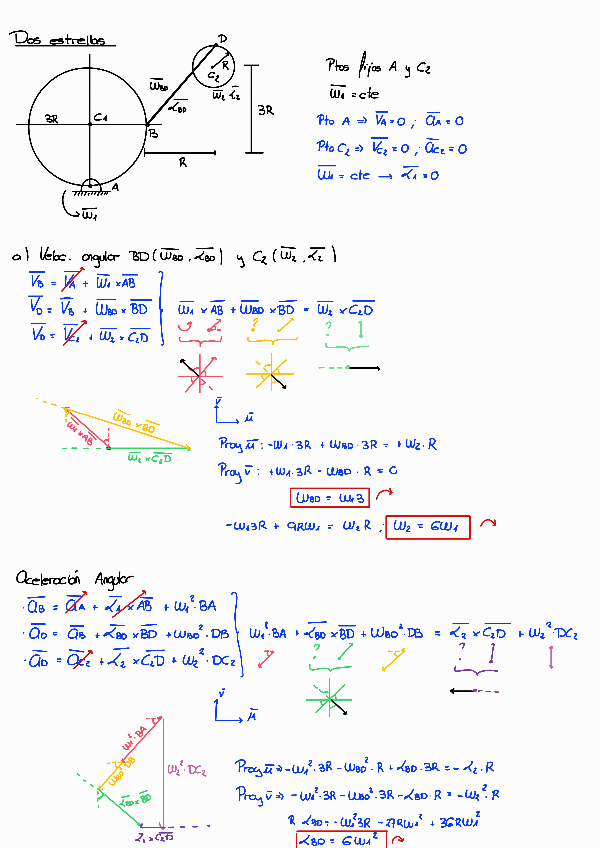 Dos estrellas
D
R
C₂
W̅BD
α̅BD
W̅₂ α̅₂
3R
C1
B
3R
R
A
W̅₁
Ptos fijos A y C₂
W̅₁ = cte
Pto A ⇒ V̅A = 0 ; a̅A = 0
Pto C₂ ⇒ V̅C₂ = 0 ; a̅C₂ = 0
W̅₁ = cte → α̅₁ = 0
a) Veloc. angular BD (W̅BD, α̅BD) y C₂ (W̅₂, α̅₂)
V̅B = V̅A + W̅₁ × A̅B̅
V̅D = V̅B + W̅BD × B̅D̅
V̅D = V̅C₂ + W̅₂ × C̅₂D̅
W̅₁ × A̅B̅ + W̅BD × B̅D̅ = W̅₂ × C̅₂D̅
? ?
W̅BD × B̅D̅
W̅₁ × A̅B̅
W̅₂ × C̅₂D̅
v̅
μ̅
Proy μ̅ : -W₁·3R + WBD·3R = +W₂·R
Proy v̅ : +W₁·3R - WBD·R = 0
WBD = W₁3
-W₁3R + 9RW₁ = W₂R ; W₂ = 6W₁
Aceleración Angular
· a̅B = a̅A + α̅₁ × A̅B̅ + W₁²·BA
· a̅D = a̅B + α̅BD × B̅D̅ + WBD²·DB
· a̅D = a̅C₂ + α̅₂ × C̅₂D̅ + W₂²·DC₂
W₁²·BA + α̅BD × B̅D̅ + WBD²·DB = α̅₂ × C̅₂D̅ + W₂²·DC₂
? ?
v̅
μ̅
W₁²·BA
WBD²·DB
W₂²·DC₂
α̅BD × B̅D̅
α̅₂ × C̅₂D̅
Proy μ̅ ⇒ -W₁²·3R - WBD²·R + αBD·3R = -α₂·R
Proy v̅ ⇒ -W₁²·3R - WBD²·3R - αBD·R = -W₂²·R
R αBD = -W₁²3R - 27RW₁² + 36RW₁²
αBD = 6W₁²